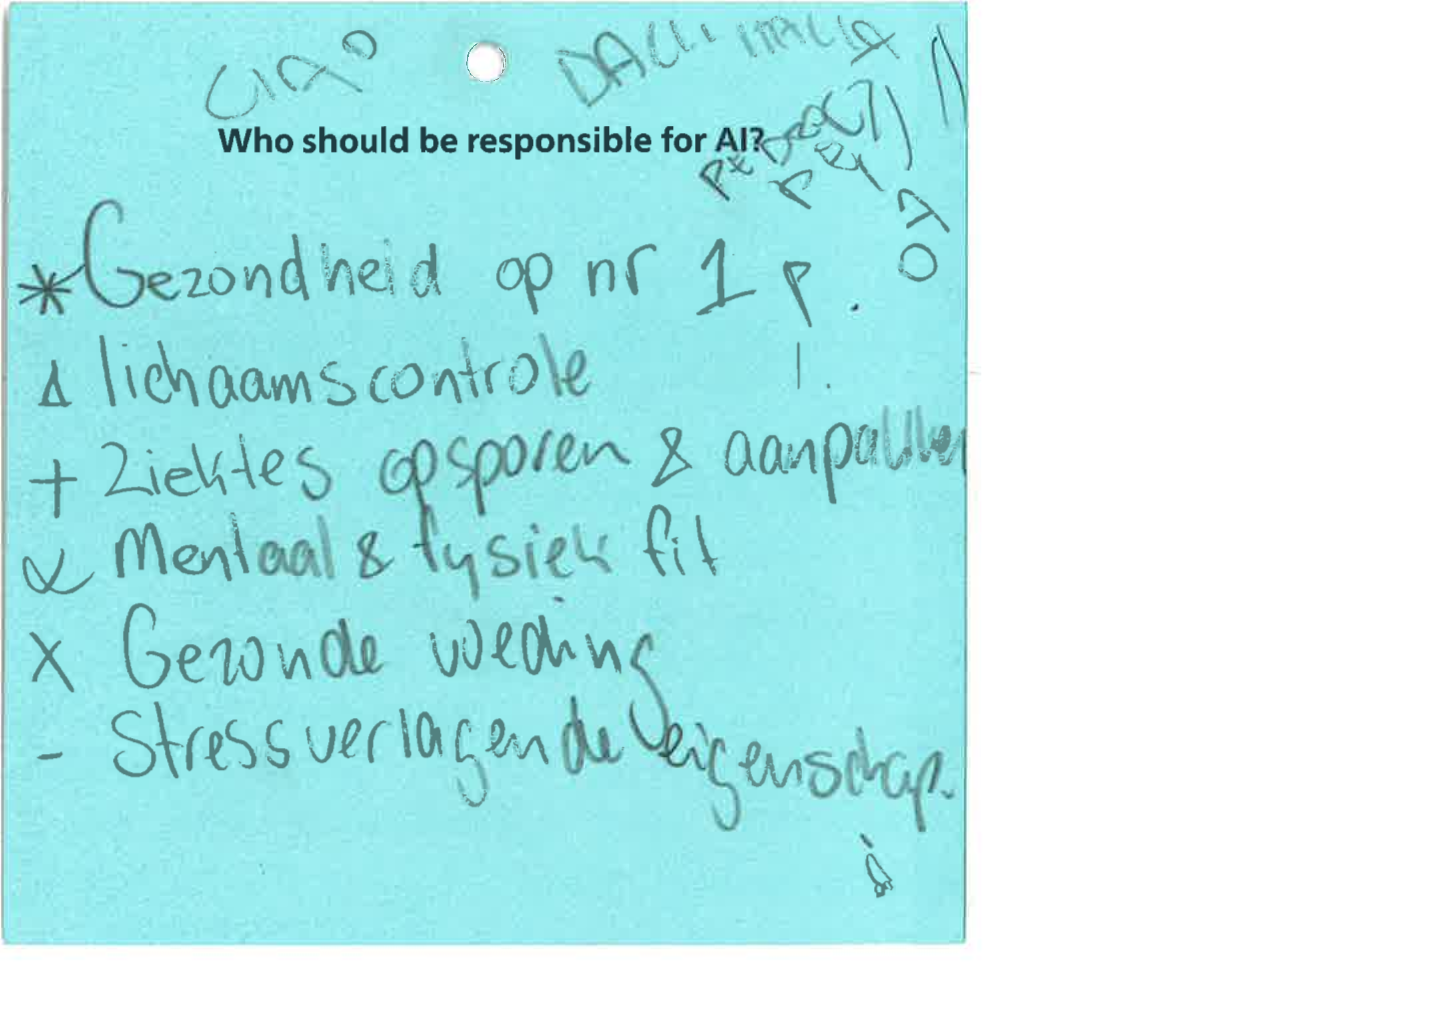 CIAO DALL'ITALIA
Who should be responsible for AI?
* Gezondheid op nr 1
Δ lichaamscontrole
+ Ziektes opsporen & aanpakken
α Mentaal & fysiek fit
X Gezonde voeding
- Stressverlagende eigenschap.